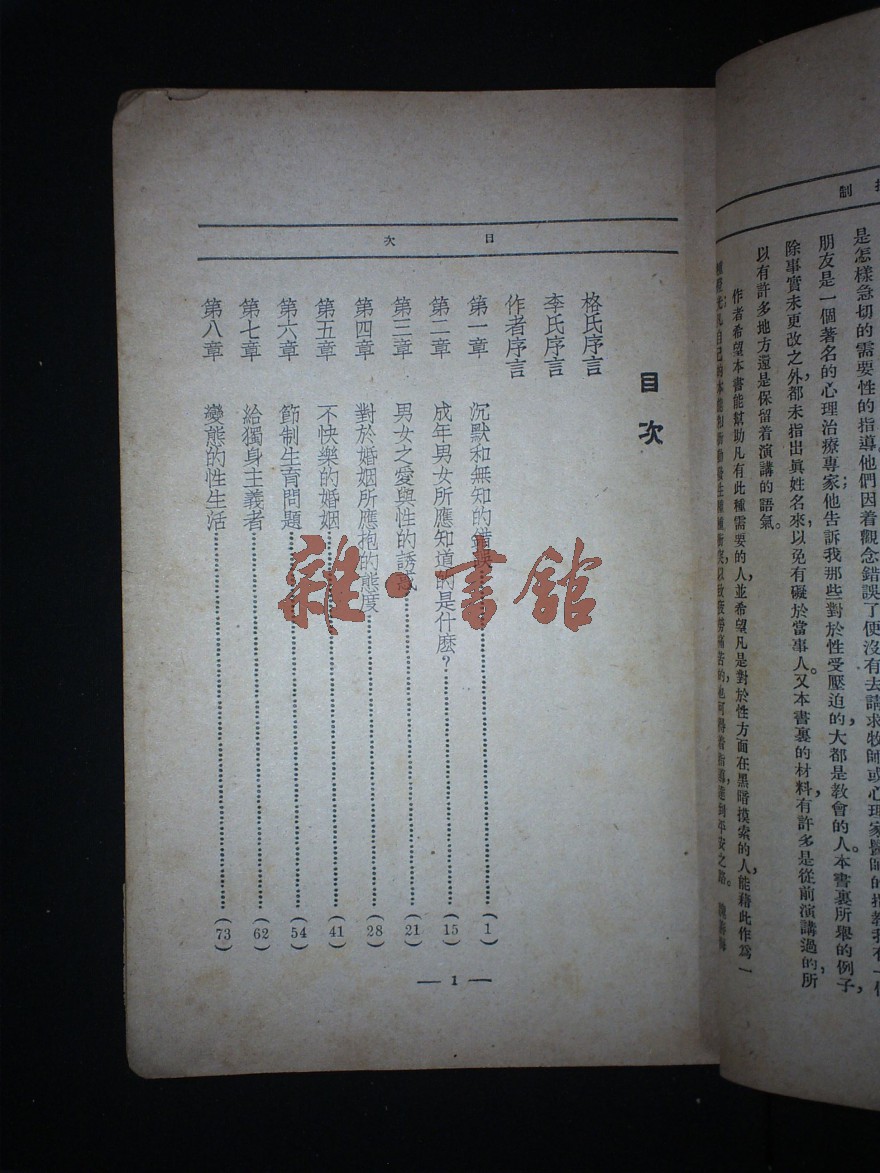 制
是怎樣急切的需要性的指導他們因着觀念錯誤了便沒有去請求牧師或心理家醫師的指教我有一位
朋友是一個著名的心理治療專家他告訴我那些對於性受壓迫的大都是教會的人本書裏所舉的例子，
除事實未更改之外都未指出眞姓名來，以免有礙於當事人。又本書裏的材料，有許多是從前演講過的，所
以有許多地方還是保留着演講的語氣。
作者希望本書能幫助凡有此種需要的人，並希望凡是對於性方面在黑暗摸索的人，能藉此作爲一
目次
目次
格氏序言
李氏序言
作者序言
第一章 沉默和無知的錯誤……(1)
第二章 成年男女所應知道的是什麽？……(15)
第三章 男女之愛與性的誘惑……(21)
第四章 對於婚姻所應抱的態度……(28)
第五章 不快樂的婚姻……(41)
第六章 節制生育問題……(54)
第七章 給獨身主義者……(62)
第八章 變態的性生活……(73)
— 1 —
雜·書館